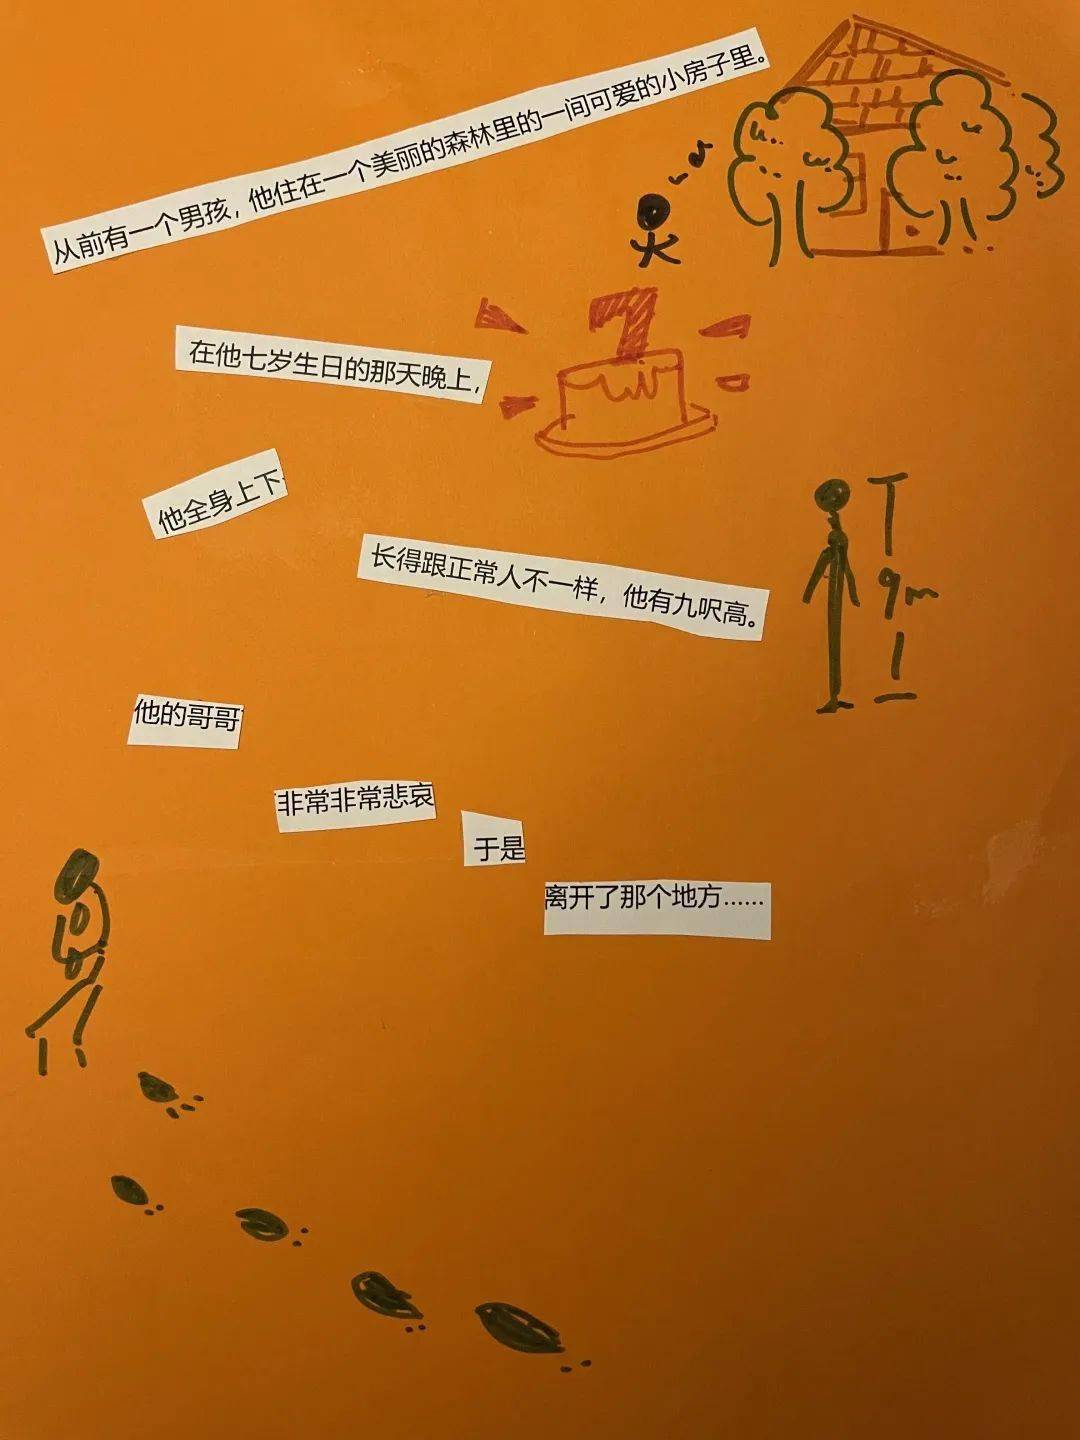 从前有一个男孩，他住在一个美丽的森林里的一间可爱的小房子里。
在他七岁生日的那天晚上，
7
他全身上下
长得跟正常人不一样，他有九呎高。
9m
他的哥哥
非常非常悲哀
于是
离开了那个地方……